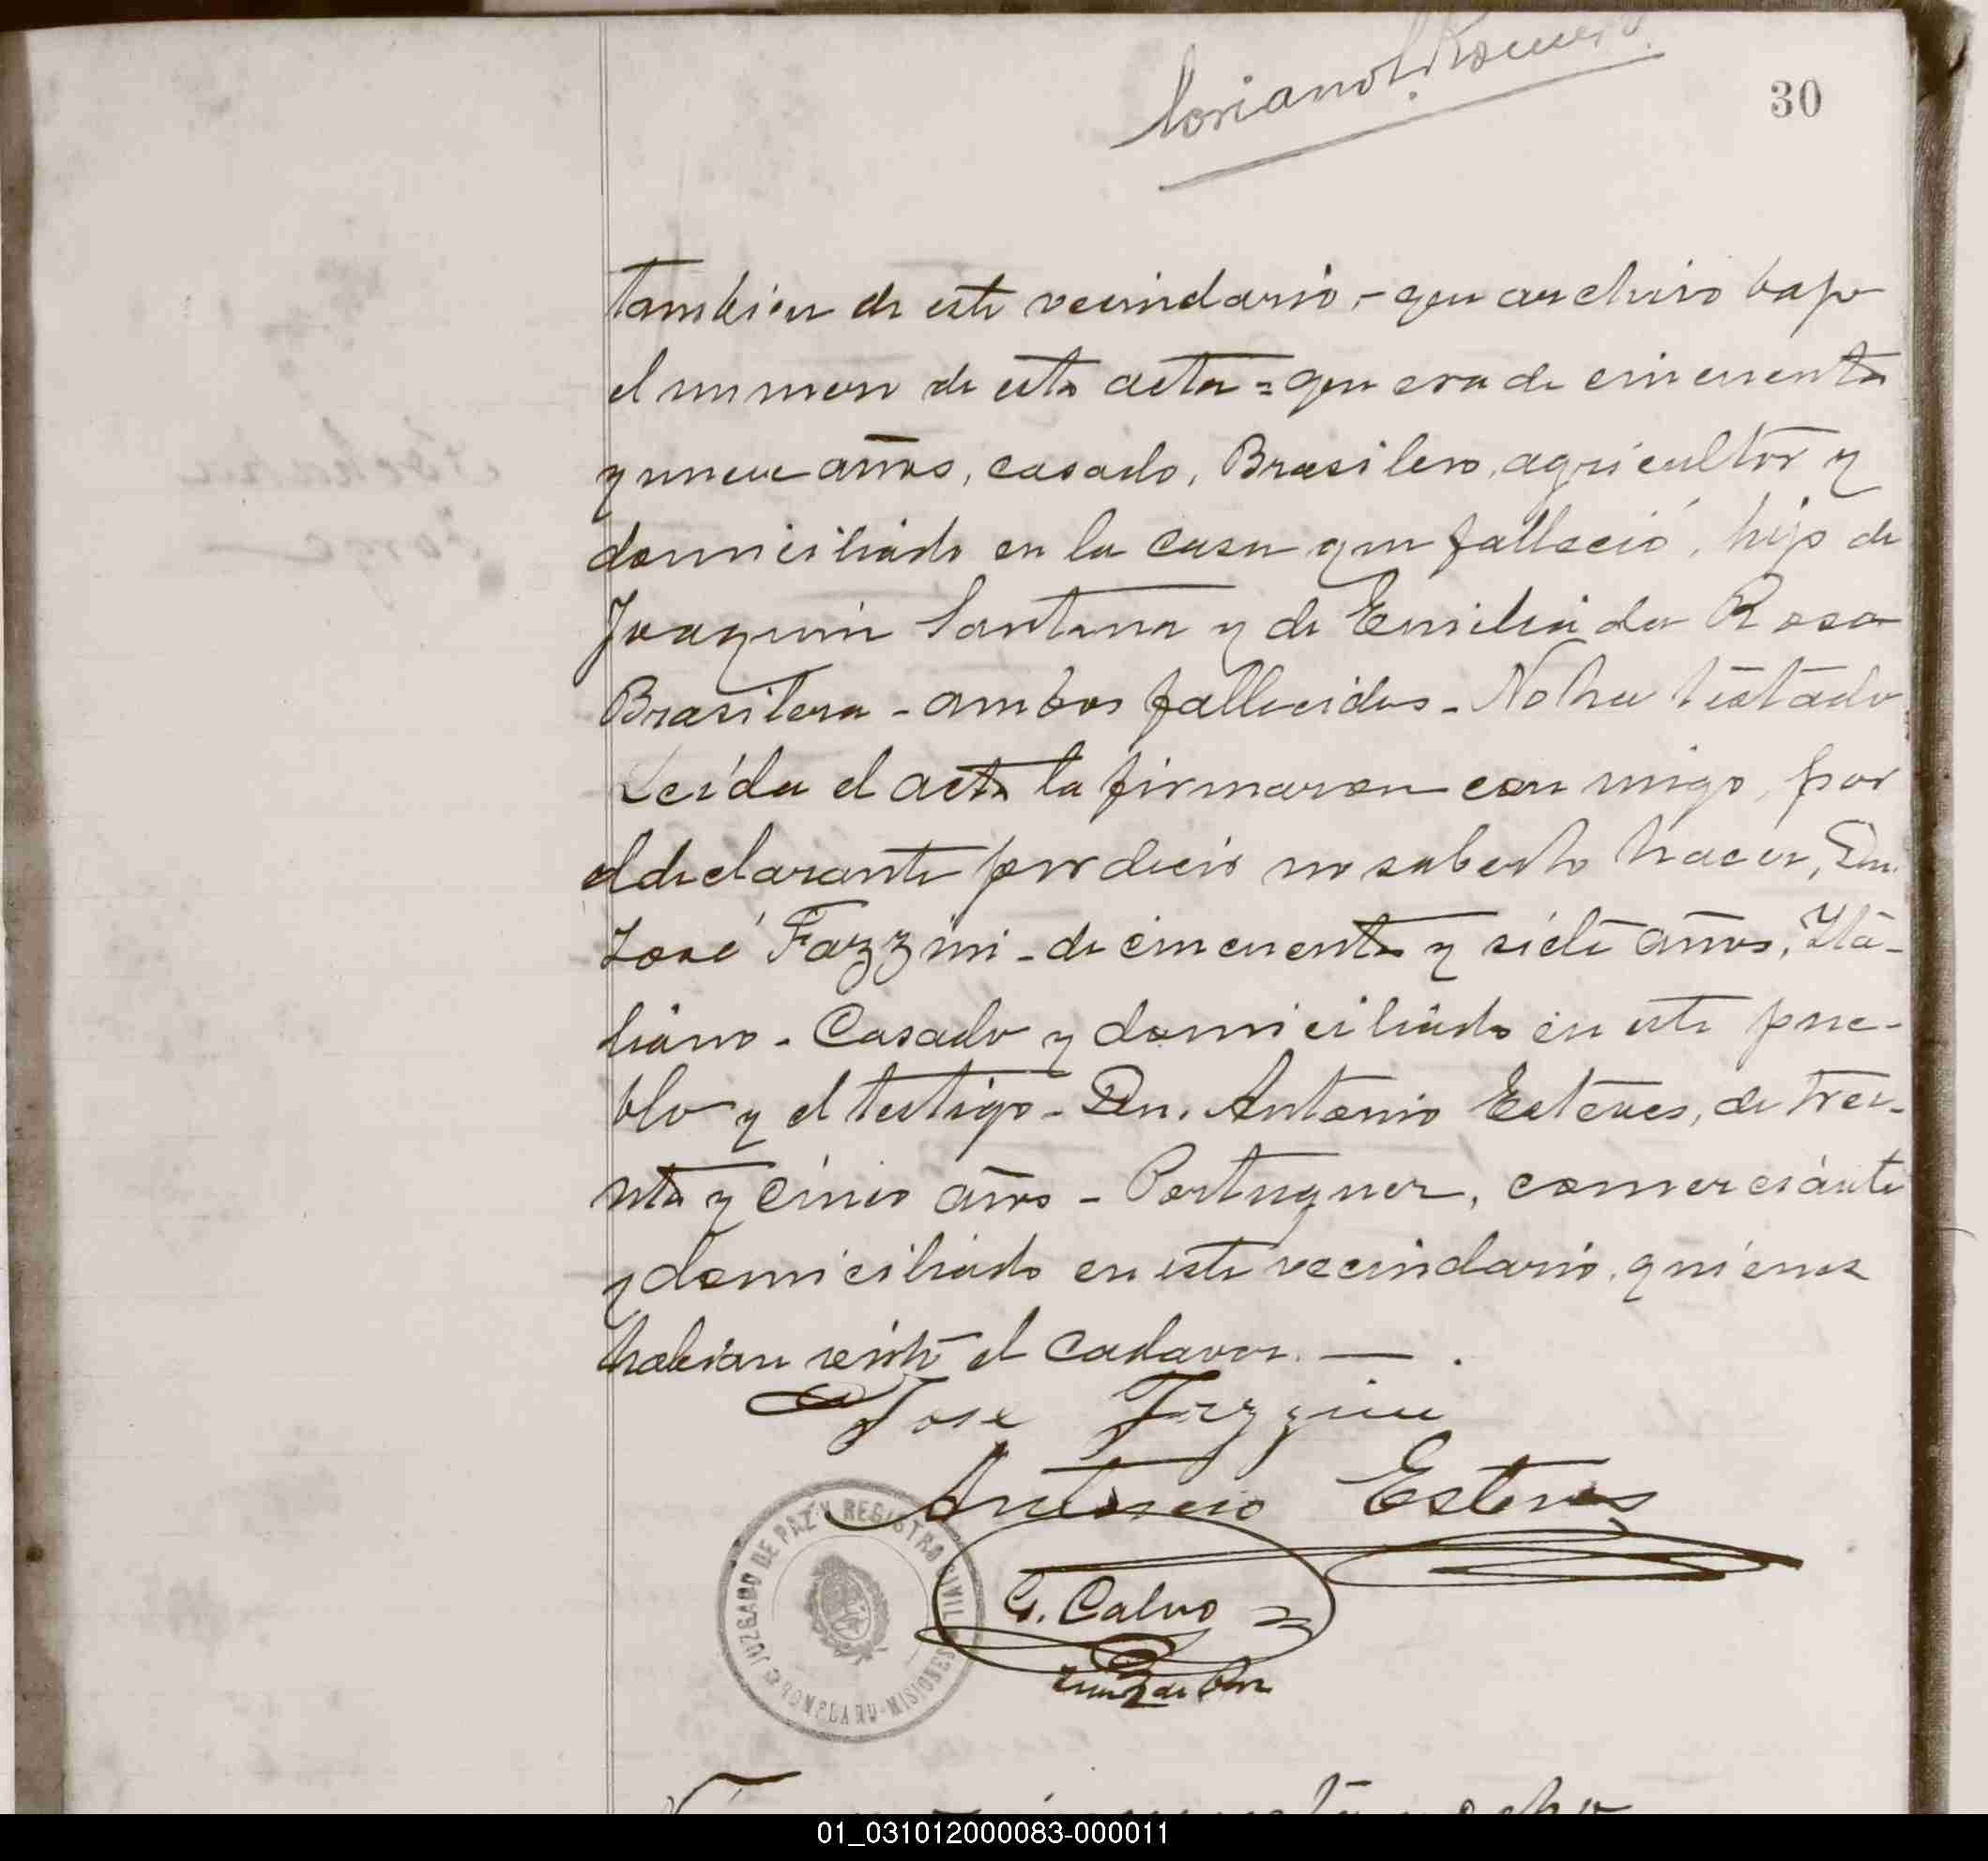 30
tambien de este vecindario, - que archivo bajo
el numero de esta acta = que era de cincuenta
y nueve años, casado, Brasilero, agricultor y
domiciliado en la casa que falleció, hijo de
Joaquin Santana y de Emilia da Rosa
Brasilera - ambos fallecidos - No ha testado
Leída el acta la firmaron con migo, por
el declarante por decir no saberlo hacer, Dn.
José Fazzini - de cincuenta y siete años, Ita-
liano - Casado y domiciliado en este pue-
blo y el testigo - Dn. Antonio Esteves, de trei-
nta y cinco años - Portugues, comerciante
y domiciliado en este vecindario, quienes
habian visto el cadaver. — .
Jose Fazzini
Antonio Esteves
JUZGADO DE PAZ Y REGISTRO CIVIL
BOMPLAND-MISIONES
G. Calvo
Juez de Paz
cincuenta y ocho
01_031012000083-000011